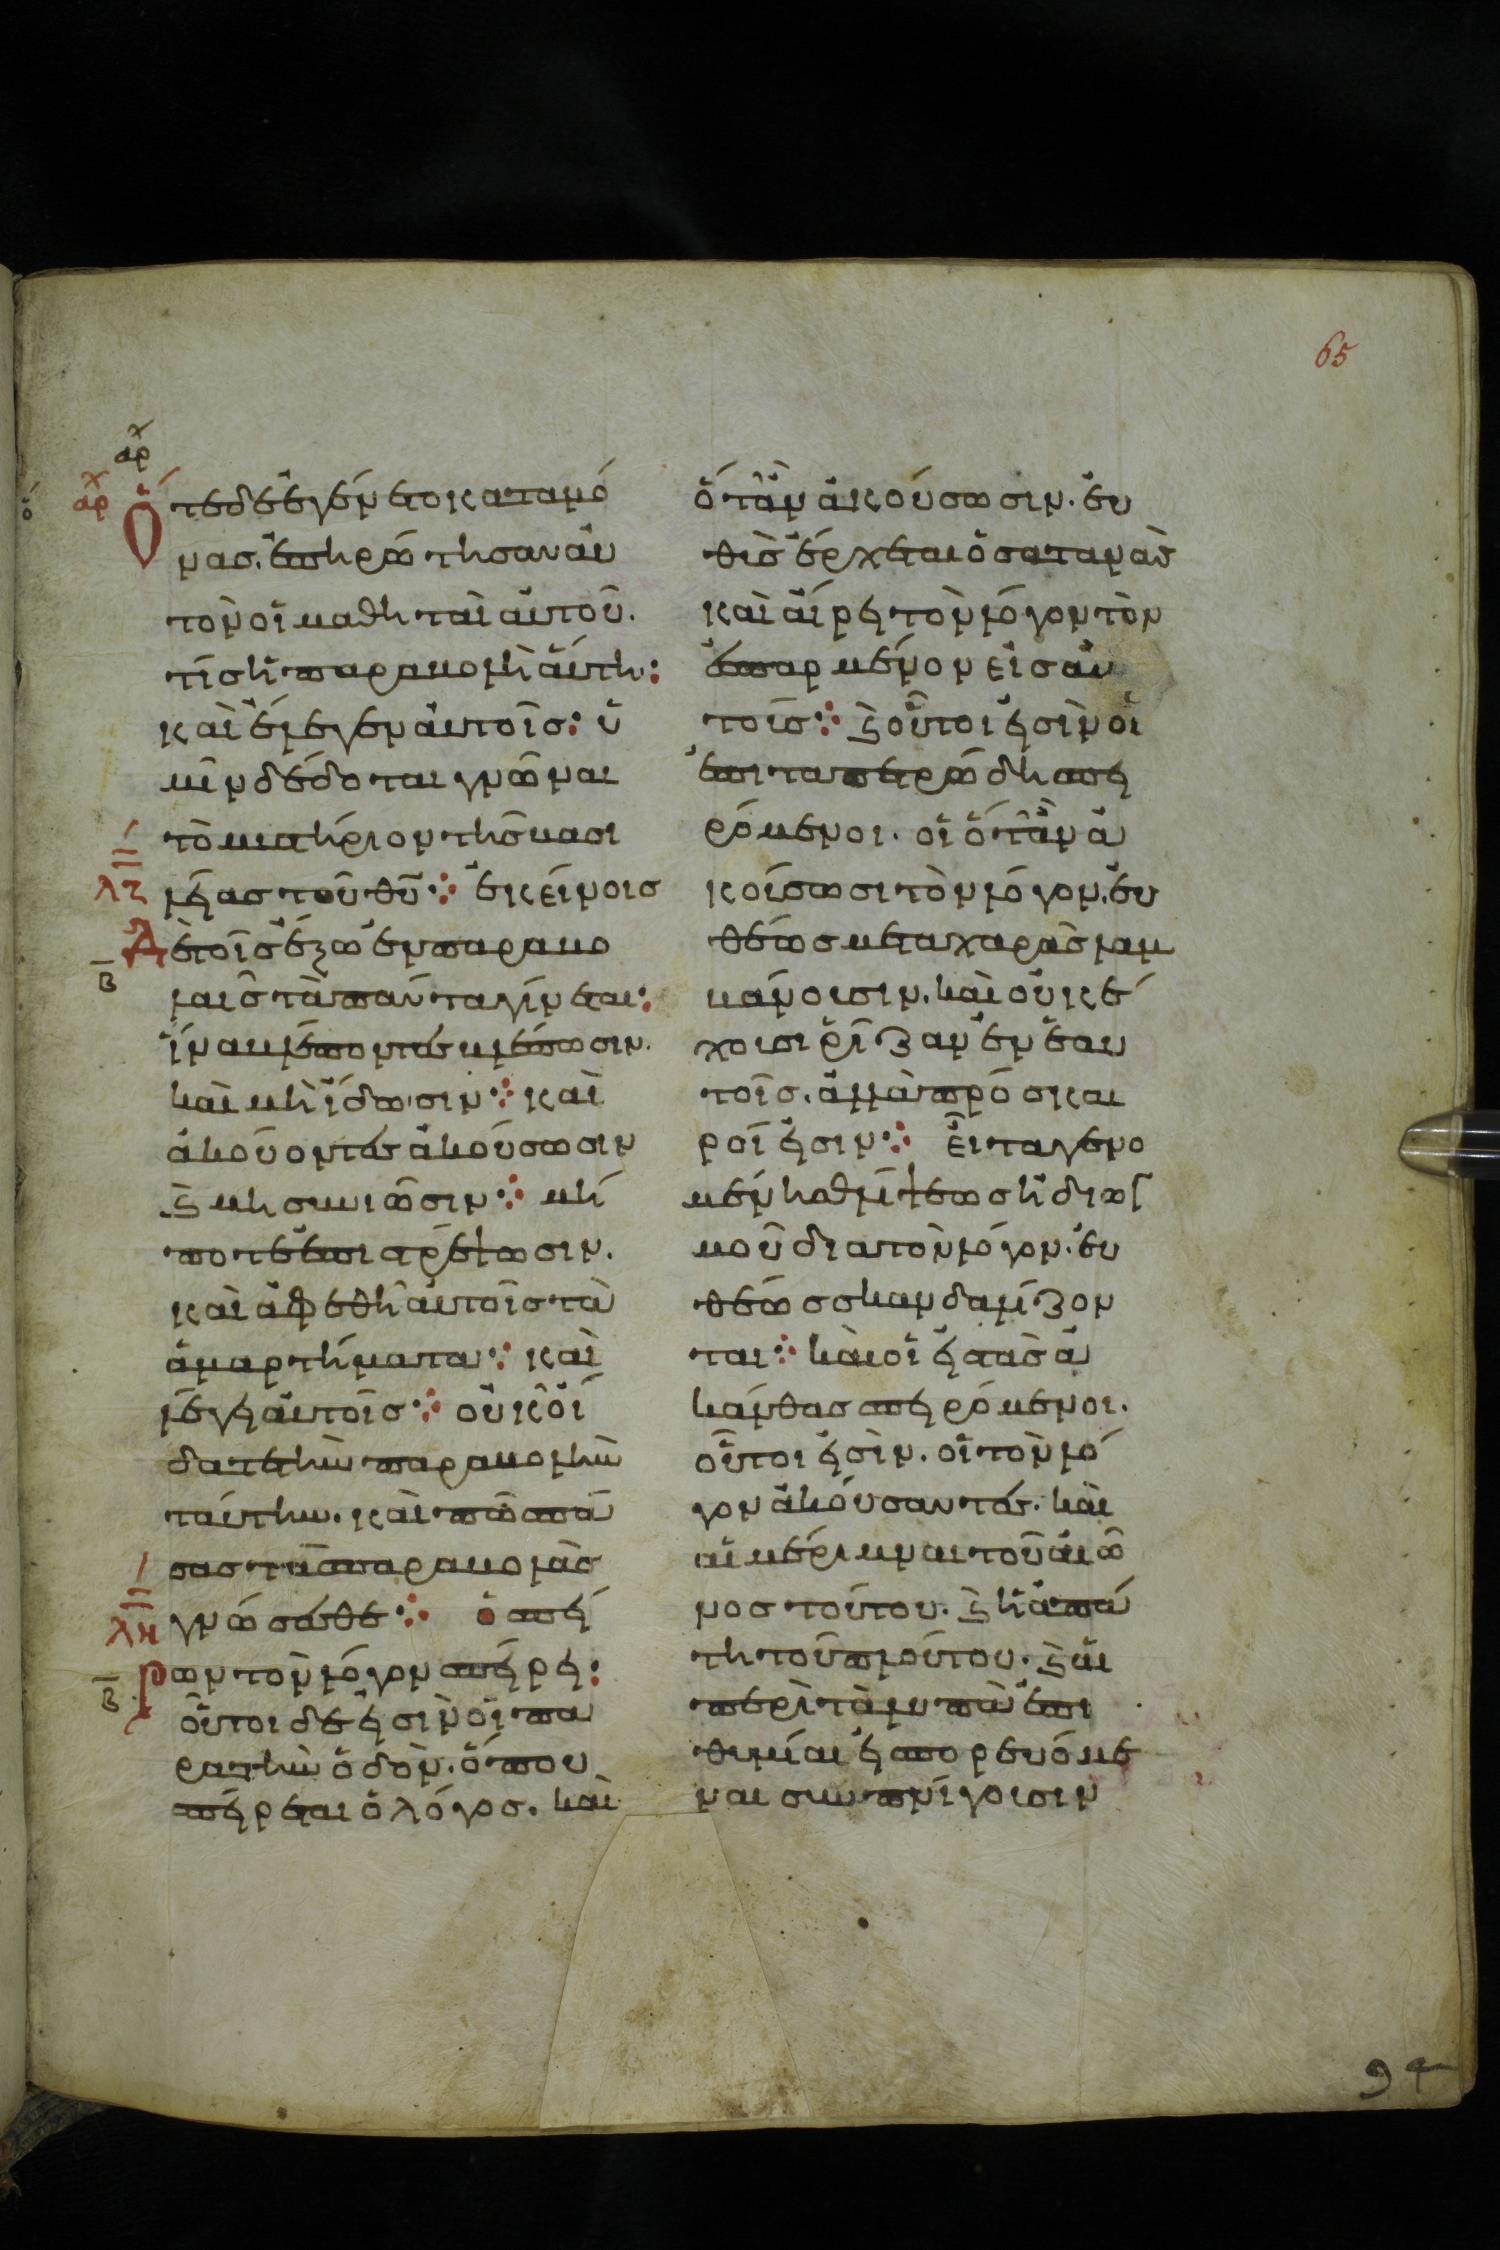 65
αρχ
αρχ
Ὅτε δὲ ἐγένετο καταμό
νας. ἐπηρώτησαν αὐ
τὸν οἱ μαθηταὶ αὐτοῦ.
τίς ἡ παραβολὴ αὕτη:
καὶ ἔλεγεν αὐτοῖς: ὑ
μῖν δέδοται γνῶναι
τὸ μυστήριον τῆς βασι
λζ
λείας τοῦ θῡ ⁘ ἐκείνοις
Δὲ τοῖς ἔξω ἐν παραβο
β
λαῖς τὰ πάντα γίνεται:
ἵνα βλέποντες βλέπωσιν.
καὶ μὴ ἴδωσιν ⁘ καὶ
ἀκούοντες ἀκούσωσιν
ϗ μὴ συνιῶσιν ⁘ μή
ποτε ἐπιστρέψωσιν.
καὶ ἀφεθῆ αὐτοῖς τὰ
ἁμαρτήματα ⁘ καὶ
λέγει αὐτοῖς ⁘ οὐκ οἴ
δατε τὴν παραβολὴν
ταύτην. καὶ πῶς πά
σας τὰς παραβολὰς
λη
γνώσεσθε ⁘ ὁ σπεί
Ρων τὸν λόγον σπείρει:
β
οὗτοι δέ εἰσὶν οἱ πα
ρα τὴν ὁδὸν. ὅπου
σπείρεται ὁ λόγος. καὶ
ὅτἂν ἀκούσωσιν. εὐ
θὺς ἔρχεται ὁ σατανᾶς
καὶ αἴρει τὸν λόγον τὸν
ἐσπαρμένον εἰς αὐ
τοῖς ⁘ ϗ οὗτοι εἰσὶν οἱ
ἐπι τα πετρώδη σπει
ρόμενοι. οἳ ὅτἂν ἀ
κούσωσι τὸν λόγον. εὐ
θέως μετα χαρᾶς λαμ
βάνουσιν. καὶ οὐκ ἔ
χουσι ῥίζαν ἐν ἑαυ
τοῖς. ἀλλὰ πρόσκαι
ροί εἰσιν ⁘ εἶτα γενο
μένης θλίψεως ἢ διωγ
μοῦ δια τὸν λόγον. εὐ
θέως σκανδαλίζον
ται ⁘ καὶ οἱ εἰς τὰς ἀ
κάνθας σπειρόμενοι.
οὗτοι εἰσὶν. οἱ τὸν λό
γον ἀκούσαντες. καὶ
αἱ μέριμναι τοῦ αἰῶ
νος τούτου. ϗ ἡ ἀπά
τη τοῦ πλούτου. ϗ αἱ
περὶ τὰ λυπὰ ἐπι
θυμίαι εἰσπορευόμε
ναι συνπνίγουσιν
94